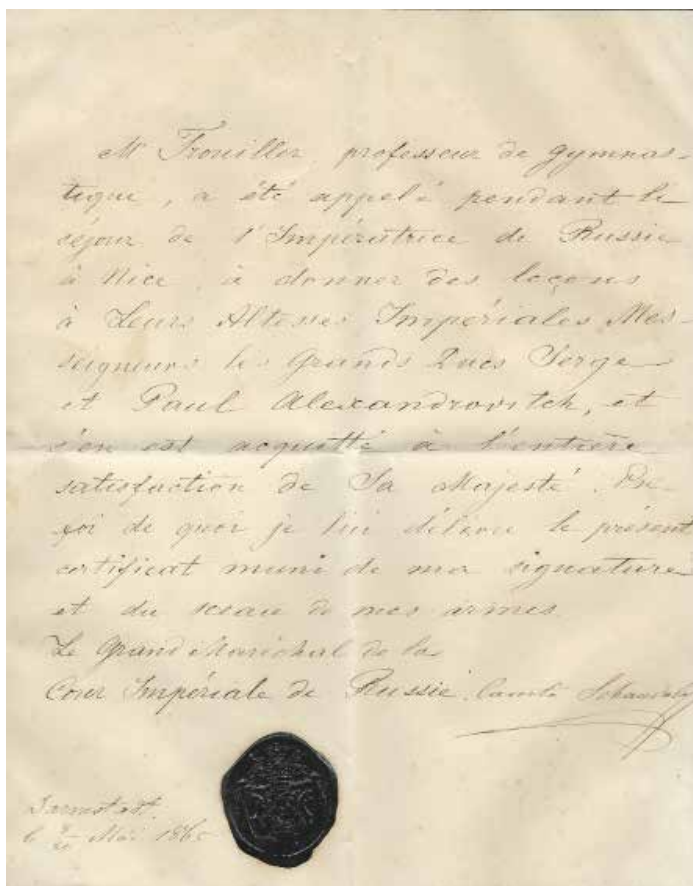 Mr Trouiller professeur de gymnas-
tique, a été appelé pendant le
séjour de l'Impératrice de Russie
à Nice, à donner des leçons
à Leurs Altesses Impériales Mes-
seigneurs les Grands Ducs Serge
et Paul Alexandrovitch, et
s'en est acquitté à l'entière
satisfaction de Sa Majesté. En
foi de quoi je lui délivre le présent
certificat muni de ma signature
et du sceau de mes armes
Le Grand Maréchal de la
Cour Impériale de Russie. Comte
Darmstadt.
le Mai